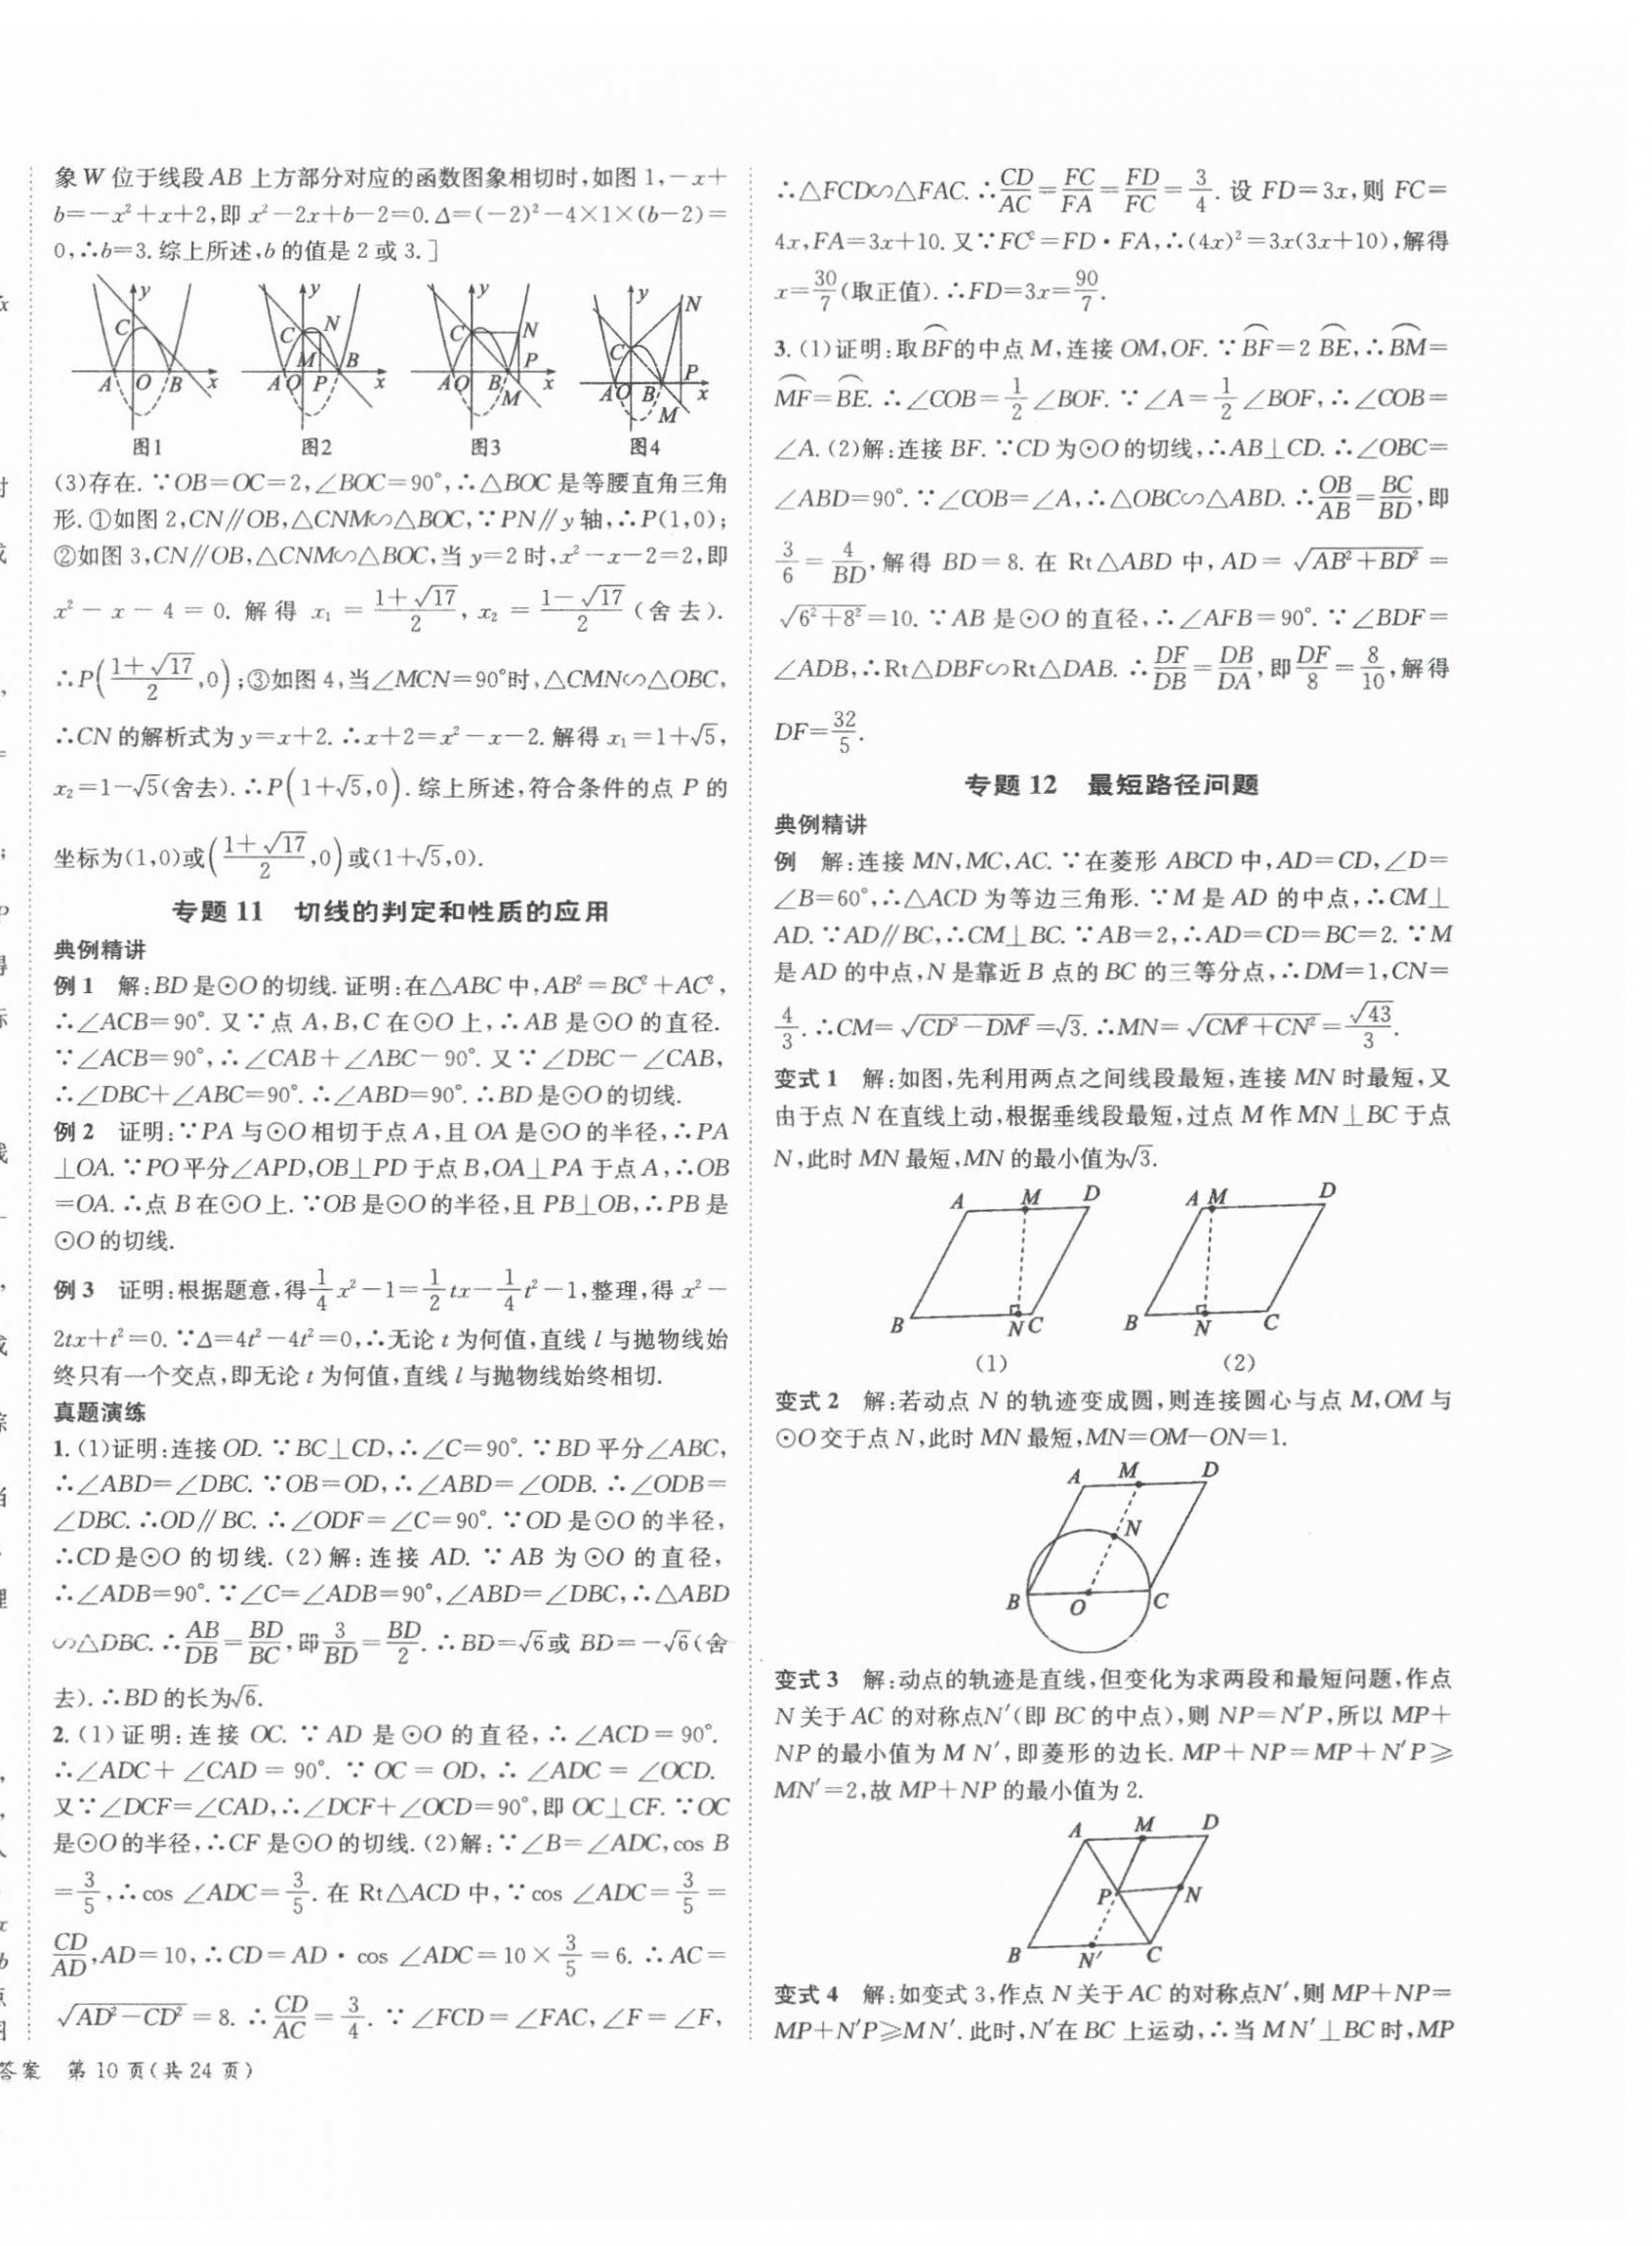 象W位于线段AB上方部分对应的函数图象相切时,如图1,−x+
b=−x²+x+2,即x²−2x+b−2=0.Δ=(−2)²−4×1×(b−2)=
0,∴b=3.综上所述,b的值是2或3.]
y C A O B x 图1
y C N M A O P B x 图2
y C N P A O B M x 图3
y N C P A O B M x 图4
(3)存在.∵OB=OC=2,∠BOC=90°,∴△BOC是等腰直角三角
形.①如图2,CN∥OB,△CNM∽△BOC,∵PN∥y轴,∴P(1,0);
②如图3,CN∥OB,△CNM∽△BOC,当y=2时,x²−x−2=2,即
x²−x−4=0.解得x₁=(1+√17)/2,x₂=(1−√17)/2(舍去).
∴P((1+√17)/2,0);③如图4,当∠MCN=90°时,△CMN∽△OBC,
∴CN的解析式为y=x+2.∴x+2=x²−x−2.解得x₁=1+√5,
x₂=1−√5(舍去).∴P(1+√5,0).综上所述,符合条件的点P的
坐标为(1,0)或((1+√17)/2,0)或(1+√5,0).
专题11 切线的判定和性质的应用
典例精讲
例1 解:BD是⊙O的切线.证明:在△ABC中,AB²=BC²+AC²,
∴∠ACB=90°.又∵点A,B,C在⊙O上,∴AB是⊙O的直径.
∵∠ACB=90°,∴∠CAB+∠ABC−90°.又∵∠DBC−∠CAB,
∴∠DBC+∠ABC=90°.∴∠ABD=90°.∴BD是⊙O的切线.
例2 证明:∵PA与⊙O相切于点A,且OA是⊙O的半径,∴PA
⊥OA.∵PO平分∠APD,OB⊥PD于点B,OA⊥PA于点A,∴OB
=OA.∴点B在⊙O上.∵OB是⊙O的半径,且PB⊥OB,∴PB是
⊙O的切线.
例3 证明:根据题意,得1/4x²−1=1/2tx−1/4t²−1,整理,得x²−
2tx+t²=0.∵Δ=4t²−4t²=0,∴无论t为何值,直线l与抛物线始
终只有一个交点,即无论t为何值,直线l与抛物线始终相切.
真题演练
1.(1)证明:连接OD.∵BC⊥CD,∴∠C=90°.∵BD平分∠ABC,
∴∠ABD=∠DBC.∵OB=OD,∴∠ABD=∠ODB.∴∠ODB=
∠DBC.∴OD∥BC.∴∠ODF=∠C=90°.∵OD是⊙O的半径,
∴CD是⊙O的切线.(2)解:连接AD.∵AB为⊙O的直径,
∴∠ADB=90°.∵∠C=∠ADB=90°,∠ABD=∠DBC,∴△ABD
∽△DBC.∴AB/DB=BD/BC,即3/BD=BD/2.∴BD=√6或BD=−√6(舍
去).∴BD的长为√6.
2.(1)证明:连接OC.∵AD是⊙O的直径,∴∠ACD=90°.
∴∠ADC+∠CAD=90°.∵OC=OD,∴∠ADC=∠OCD.
又∵∠DCF=∠CAD,∴∠DCF+∠OCD=90°,即OC⊥CF.∵OC
是⊙O的半径,∴CF是⊙O的切线.(2)解:∵∠B=∠ADC,cos B
=3/5,∴cos∠ADC=3/5.在Rt△ACD中,∵cos∠ADC=3/5=
CD/AD,AD=10,∴CD=AD·cos∠ADC=10×3/5=6.∴AC=
√(AD²−CD²)=8.∴CD/AC=3/4.∵∠FCD=∠FAC,∠F=∠F,
答案 第10页(共24页)
∴△FCD∽△FAC.∴CD/AC=FC/FA=FD/FC=3/4.设FD=3x,则FC=
4x,FA=3x+10.又∵FC²=FD·FA,∴(4x)²=3x(3x+10),解得
x=30/7(取正值).∴FD=3x=90/7.
3.(1)证明:取⌒BF的中点M,连接OM,OF.∵⌒BF=2⌒BE,∴⌒BM=
⌒MF=⌒BE.∴∠COB=1/2∠BOF.∵∠A=1/2∠BOF,∴∠COB=
∠A.(2)解:连接BF.∵CD为⊙O的切线,∴AB⊥CD.∴∠OBC=
∠ABD=90°.∵∠COB=∠A,∴△OBC∽△ABD.∴OB/AB=BC/BD,即
3/6=4/BD,解得BD=8.在Rt△ABD中,AD=√(AB²+BD²)=
√(6²+8²)=10.∵AB是⊙O的直径,∴∠AFB=90°.∵∠BDF=
∠ADB,∴Rt△DBF∽Rt△DAB.∴DF/DB=DB/DA,即DF/8=8/10,解得
DF=32/5.
专题12 最短路径问题
典例精讲
例 解:连接MN,MC,AC.∵在菱形ABCD中,AD=CD,∠D=
∠B=60°,∴△ACD为等边三角形.∵M是AD的中点,∴CM⊥
AD.∵AD∥BC,∴CM⊥BC.∵AB=2,∴AD=CD=BC=2.∵M
是AD的中点,N是靠近B点的BC的三等分点,∴DM=1,CN=
4/3.∴CM=√(CD²−DM²)=√3.∴MN=√(CM²+CN²)=√43/3.
变式1 解:如图,先利用两点之间线段最短,连接MN时最短,又
由于点N在直线上动,根据垂线段最短,过点M作MN⊥BC于点
N,此时MN最短,MN的最小值为√3.
A M D B N C (1)
A M D B N C (2)
变式2 解:若动点N的轨迹变成圆,则连接圆心与点M,OM与
⊙O交于点N,此时MN最短,MN=OM−ON=1.
A M D N B O C
变式3 解:动点的轨迹是直线,但变化为求两段和最短问题,作点
N关于AC的对称点N′(即BC的中点),则NP=N′P,所以MP+
NP的最小值为MN′,即菱形的边长.MP+NP=MP+N′P⩾
MN′=2,故MP+NP的最小值为2.
A M D P N B N′ C
变式4 解:如变式3,作点N关于AC的对称点N′,则MP+NP=
MP+N′P⩾MN′.此时,N′在BC上运动,∴当MN′⊥BC时,MP